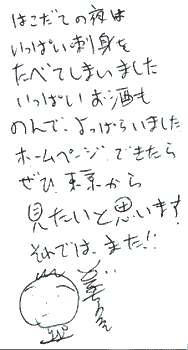 はこだての夜は
いっぱい刺身を
たべてしまいました
いっぱいお酒も
のんで、よっぱらいました
ホームページできたら
ぜひ東京から
見たいと思います
それでは、また!!